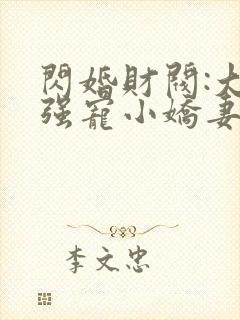 閃婚財閥:大
强寵小嬌妻
李文忠